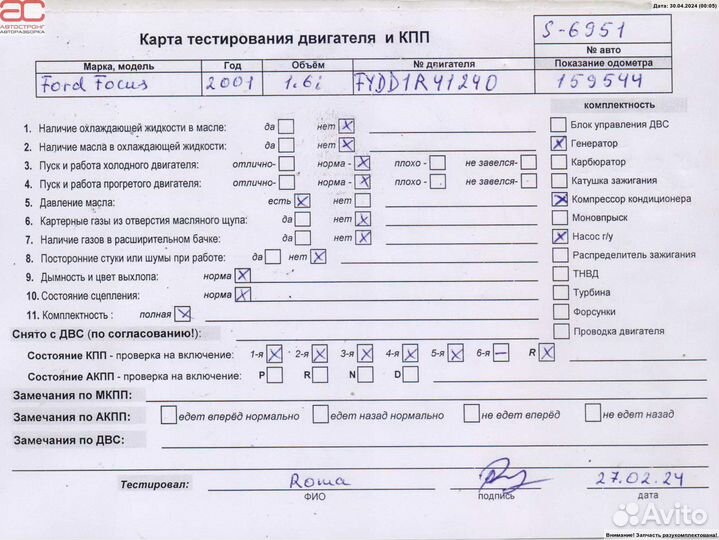 Дата: 30.04.2024 (00:05)
АС
АВТОСТРОНГ
АВТОРАЗБОРКА
Карта тестирования двигателя и КПП
S-6951
№ авто
Марка, модель Год Объём № двигателя Показание одометра
Ford Focus 2001 1.6i FYDD1R41240 159544
комплектность
1. Наличие охлаждающей жидкости в масле: да нет X
2. Наличие масла в охлаждающей жидкости: да нет X
3. Пуск и работа холодного двигателя: отлично- норма - X плохо - не завелся-
4. Пуск и работа прогретого двигателя: отлично- норма - X плохо - не завелся-
5. Давление масла: есть X нет
6. Картерные газы из отверстия масляного щупа: да нет X
7. Наличие газов в расширительном бачке: да нет X
8. Посторонние стуки или шумы при работе: да нет X
9. Дымность и цвет выхлопа: норма X
10. Состояние сцепления: норма X
11. Комплектность : полная X
Блок управления ДВС
X Генератор
Карбюратор
Катушка зажигания
X Компрессор кондиционера
Моновпрыск
X Насос г/у
Распределитель зажигания
ТНВД
Турбина
Форсунки
Проводка двигателя
Снято с ДВС (по согласованию!):
Состояние КПП - проверка на включение: 1-я X 2-я X 3-я X 4-я X 5-я X 6-я — R X
Состояние АКПП - проверка на включение: P R N D
Замечания по МКПП:
Замечания по АКПП: едет вперёд нормально едет назад нормально не едет вперёд не едет назад
Замечания по ДВС:
Тестировал: Roma 27.02.24
ФИО подпись дата
Avito
Внимание! Запчасть разукомплектована!